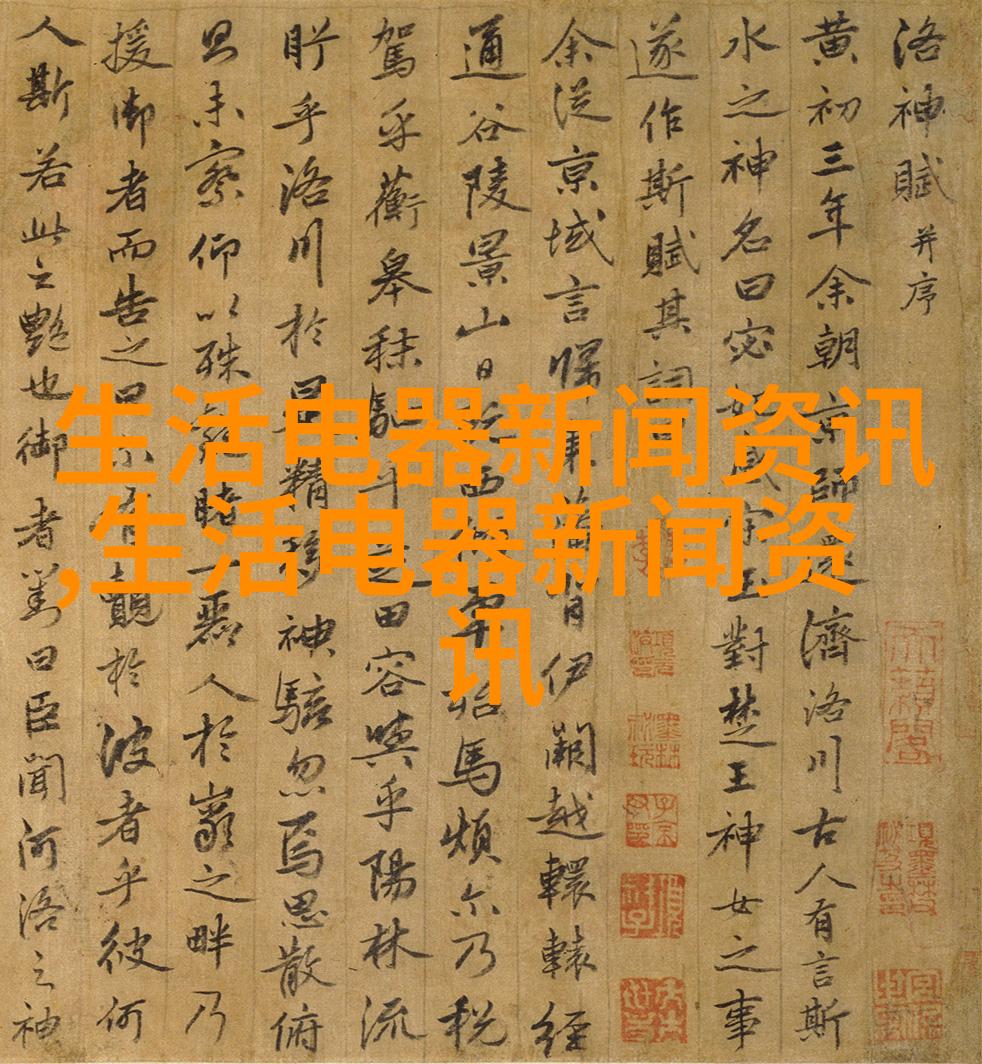 洛神賦并序
黃初三年余朝京師還濟洛川古人有言斯
水之神名曰宓妃感宋玉對楚王神女之事
遂作斯賦其詞曰
余從京域言歸東藩背伊闕越轘轅經
通谷陵景山日既西傾車殆馬煩尒乃税
駕乎蘅皋秣駟乎芝田容與乎陽林流
眄乎洛川於是精移神駭忽焉思散俯
則未察仰以殊觀睹一麗人於巖之畔乃
援御者而告之曰尒有覿於彼者乎彼何
人斯若此之艷也御者對曰臣聞河洛之神
生活电器新闻资讯
,生活电器新闻资
讯